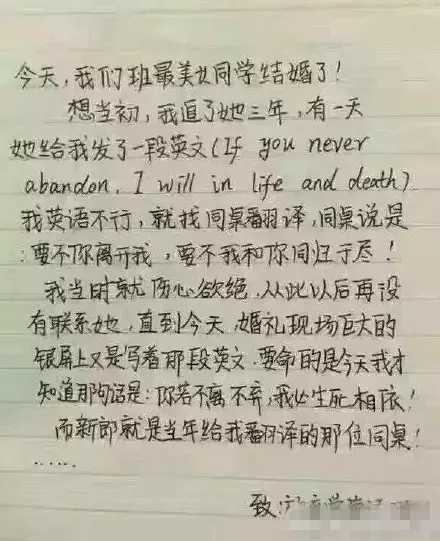 今天,我们班最美女同学结婚了!
想当初,我追了她三年,有一天
她给我发了一段英文(If you never
abandon, I will in life and death)
我英语不行,就找同桌翻译,同桌说是
:要不你离开我,要不我和你同归于尽!
我当时就伤心欲绝,从此以后再没
有联系她,直到今天,婚礼现场巨大的
银屏上又是写着那段英文.要命的是今天我才
知道那句话是:你若不离不弃,我必生死相依!
而新郎就是当年给我翻译的那位同桌!
......
致: